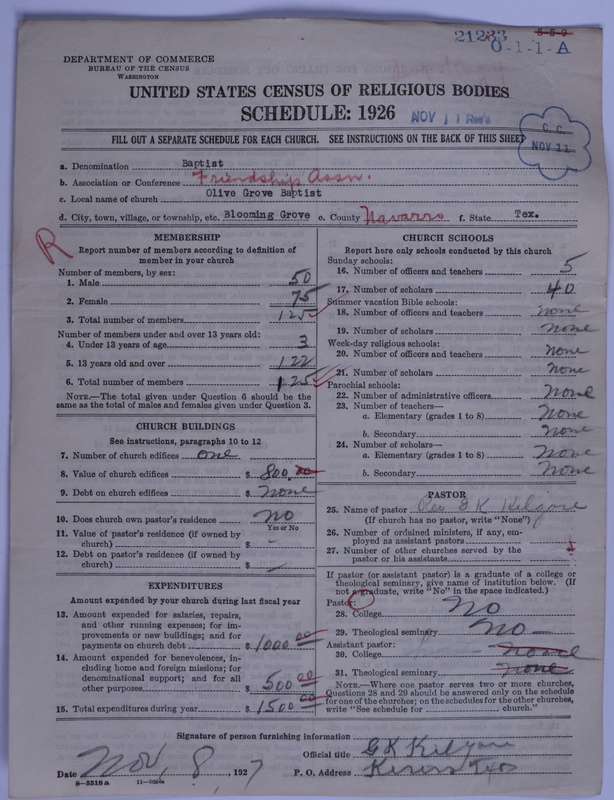 21233 5-5-9
0-1-1-A
DEPARTMENT OF COMMERCE
BUREAU OF THE CENSUS
WASHINGTON
UNITED STATES CENSUS OF RELIGIOUS BODIES
SCHEDULE: 1926
NOV 11 Rec'd
FILL OUT A SEPARATE SCHEDULE FOR EACH CHURCH. SEE INSTRUCTIONS ON THE BACK OF THIS SHEET
C. C.
NOV 11
a. Denomination Baptist
b. Association or Conference Friendship Assn.
c. Local name of church Olive Grove Baptist
d. City, town, village, or township, etc. Blooming Grove e. County Navarro f. State Tex.
R
MEMBERSHIP
Report number of members according to definition of
member in your church
Number of members, by sex:
1. Male 50
2. Female 75
3. Total number of members 125
Number of members under and over 13 years old:
4. Under 13 years of age 3
5. 13 years old and over 122
6. Total number of members 125
NOTE.—The total given under Question 6 should be the
same as the total of males and females given under Question 3.
CHURCH BUILDINGS
See instructions, paragraphs 10 to 12
7. Number of church edifices one
8. Value of church edifices $ 800.00
9. Debt on church edifices $ None
10. Does church own pastor's residence No
Yes or No
11. Value of pastor's residence (if owned by
church) $ -
12. Debt on pastor's residence (if owned by
church) $ -
EXPENDITURES
Amount expended by your church during last fiscal year
13. Amount expended for salaries, repairs,
and other running expenses; for im-
provements or new buildings; and for
payments on church debt $ 1000 00
14. Amount expended for benevolences, in-
cluding home and foreign missions; for
denominational support; and for all
other purposes $ 500 00
15. Total expenditures during year $ 1500 00
CHURCH SCHOOLS
Report here only schools conducted by this church
Sunday schools:
16. Number of officers and teachers 5
17. Number of scholars 40
Summer vacation Bible schools:
18. Number of officers and teachers none
19. Number of scholars none
Week-day religious schools:
20. Number of officers and teachers none
21. Number of scholars none
Parochial schools:
22. Number of administrative officers None
23. Number of teachers—
a. Elementary (grades 1 to 8) None
b. Secondary None
24. Number of scholars—
a. Elementary (grades 1 to 8) None
b. Secondary None
PASTOR
25. Name of pastor Rev G K Kilgore
(If church has no pastor, write "None")
26. Number of ordained ministers, if any, em-
ployed as assistant pastors
27. Number of other churches served by the
pastor or his assistants 1
If pastor (or assistant pastor) is a graduate of a college or
theological seminary, give name of institution below. (If
not a graduate, write "No" in the space indicated.)
Pastor:
28. College No
29. Theological seminary No
Assistant pastor:
30. College none
31. Theological seminary none
NOTE.—Where one pastor serves two or more churches,
Questions 28 and 29 should be answered only on the schedule
for one of the churches; on the schedules for the other churches,
write "See schedule for church."
Signature of person furnishing information
Official title G K Kilgore
Date Nov. 8, 1927 P. O. Address Kerens Texas
8-5518 a